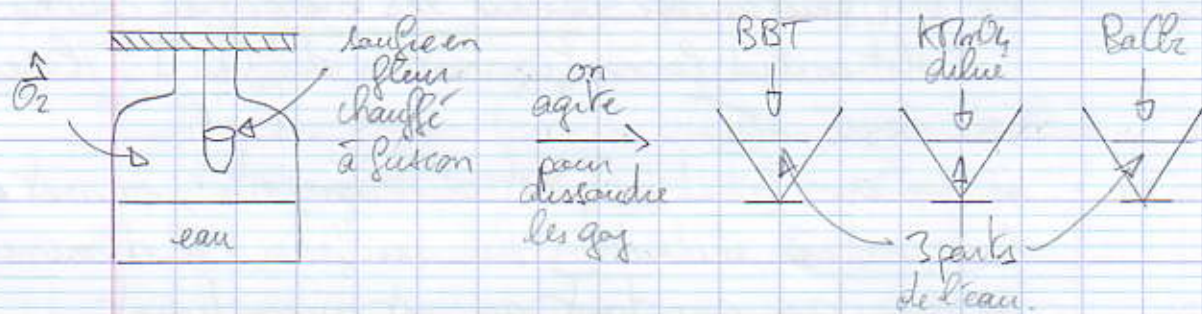 O2
soufre en
fleur
chauffé
à fusion
eau
on
agite
pour
dissoudre
les gaz.
BBT
KMnO4
dilué
BaCl2
3 parts
de l'eau.